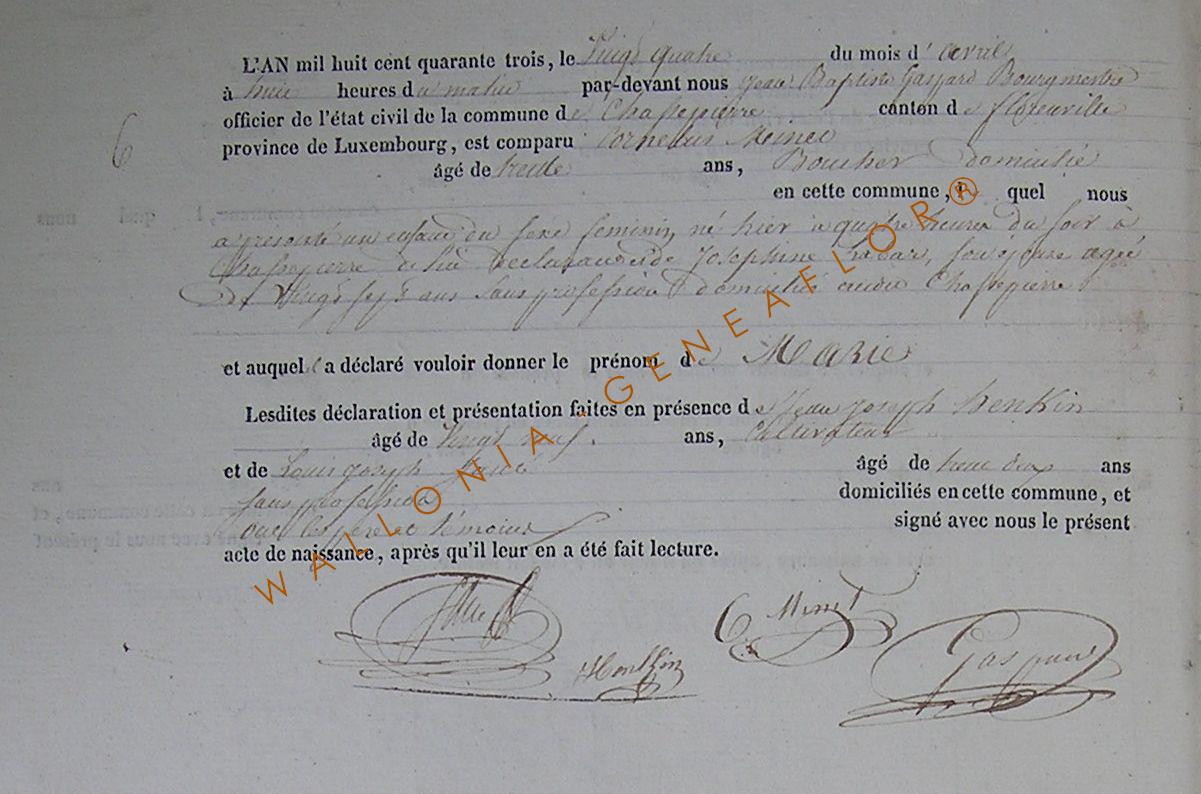 6
L'AN mil huit cent quarante trois, le Vingt quatre du mois d'avril
à huit heures du matin par-devant nous Jean Baptiste Gaspard Bourgmestre
officier de l'état civil de la commune de Chassepierre canton de florenville
province de Luxembourg, est comparu Cornelius
âgé de trente ans, Boucher domicilié
en cette commune, l quel nous
a présenté un enfant du sexe feminin, né hier à quatre heures du soir à
Chassepierre de lui déclarant et de Josephine son épouse agée
de Vingt sept ans sans profession domiciliés audit Chassepierre
et auquel il a déclaré vouloir donner le prénom de Marie
Lesdites déclaration et présentation faites en présence de Jean joseph henkin
âgé de Vingt neuf ans, Cultivateur
et de Louis joseph âgé de trente deux ans
sans profession domiciliés en cette commune, et
ont les père et témoins signé avec nous le présent
acte de naissance, après qu'il leur en a été fait lecture.
C Minet
Henkin
Gaspard
WALLONIA - GENEAFLOR®